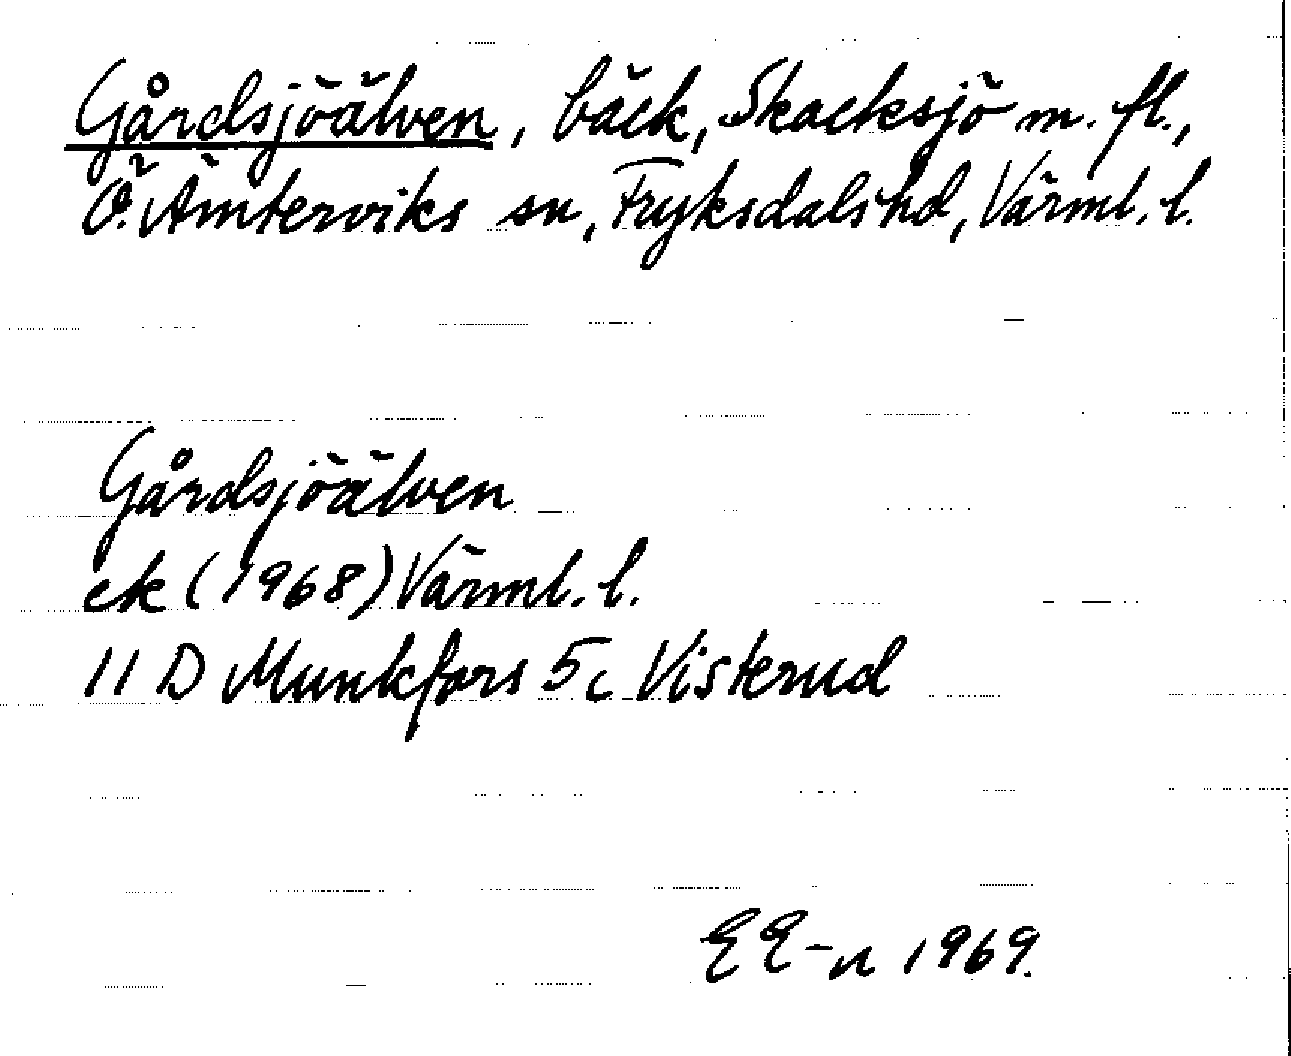 Gårdsjöälven, bäck, Skacksjö m. fl.,
Ö. Ämterviks sn, Fryksdals hd, Värml. l.
Gårdsjöälven
ek (1968) Värml. l.
11 D Munkfors 5c Visterud
EE-n 1969.